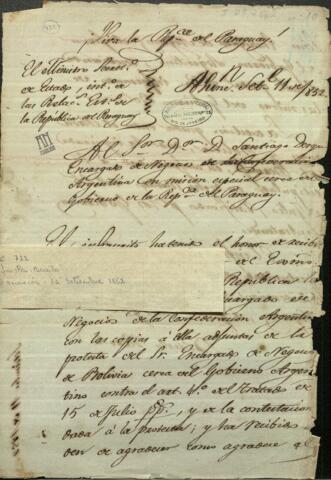 ¡Viva la Repca. del Paraguay!
El Ministro Secreto.
de Estado into. de
las Relas. Exts. de
la República del Paraguay
Setbe. 11 de 1852
Al Sor. Dor. D. Santiago Derqui
Encargado de Negocios de la Confederación
Argentina con mision especial cerca del
Gobierno de la Repca. del Paraguay.
El infrascrito ha tenido el honor de recibir
722
Setiembre 1852
del Exmo.
República
Encargado de
Negocios de la Confederacion Argentina
con las copias á ella adjuntas de la
protesta del Sr. Encargado de Negocios
de Bolivia cerca del Gobierno Argen-
tino contra el art. 4o. del tratado de
15 de Julio ppdo., y de la contestacion
dada á la protesta; y ha recibido
orden de agradecer como agradece al